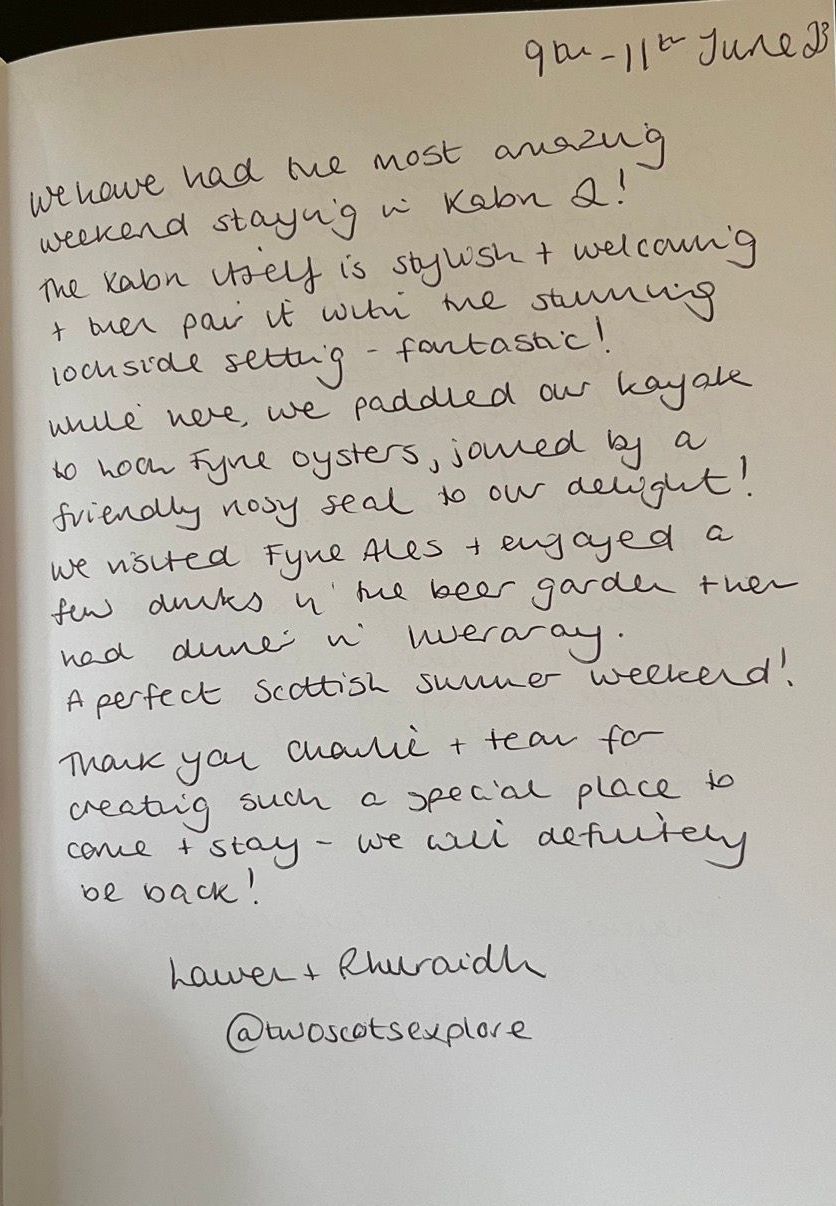 9th - 11th June 23
We have had the most amazing
weekend staying in Kabn 2!
The Kabn itself is stylish + welcoming
+ then pair it with the stunning
lochside setting - fantastic!
While here, we paddled our kayak
to Loch Fyne Oysters, joined by a
friendly nosy seal to our delight!
We visited Fyne Ales + engayed a
few drinks in the beer garden + then
had dinner in Inveraray.
A perfect Scottish summer weekend!
Thank you Charlie + team for
creating such a special place to
come + stay - we will definitely
be back!
Lauren + Rhuraidh
@twoscotsexplore